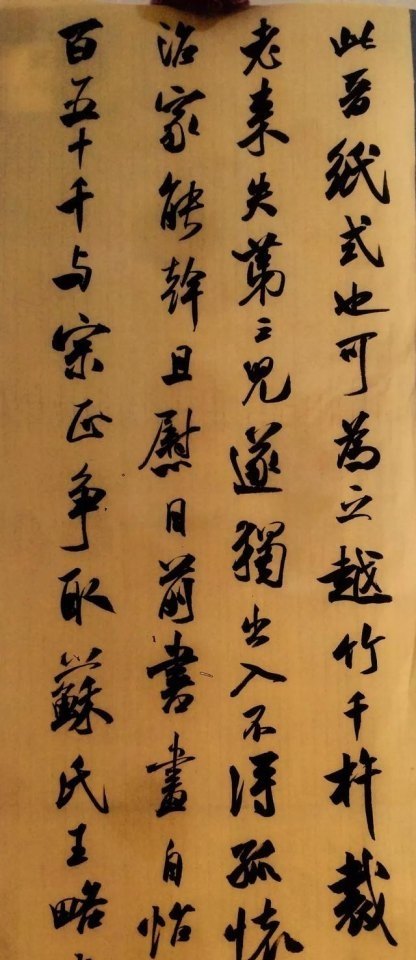 此晋紙式也可為之越竹千杵裁
老来失第三兒遂獨出入不得孤懷
治家能幹且慰目前書畫自怡
百五十千与宗正争取蘇氏王略